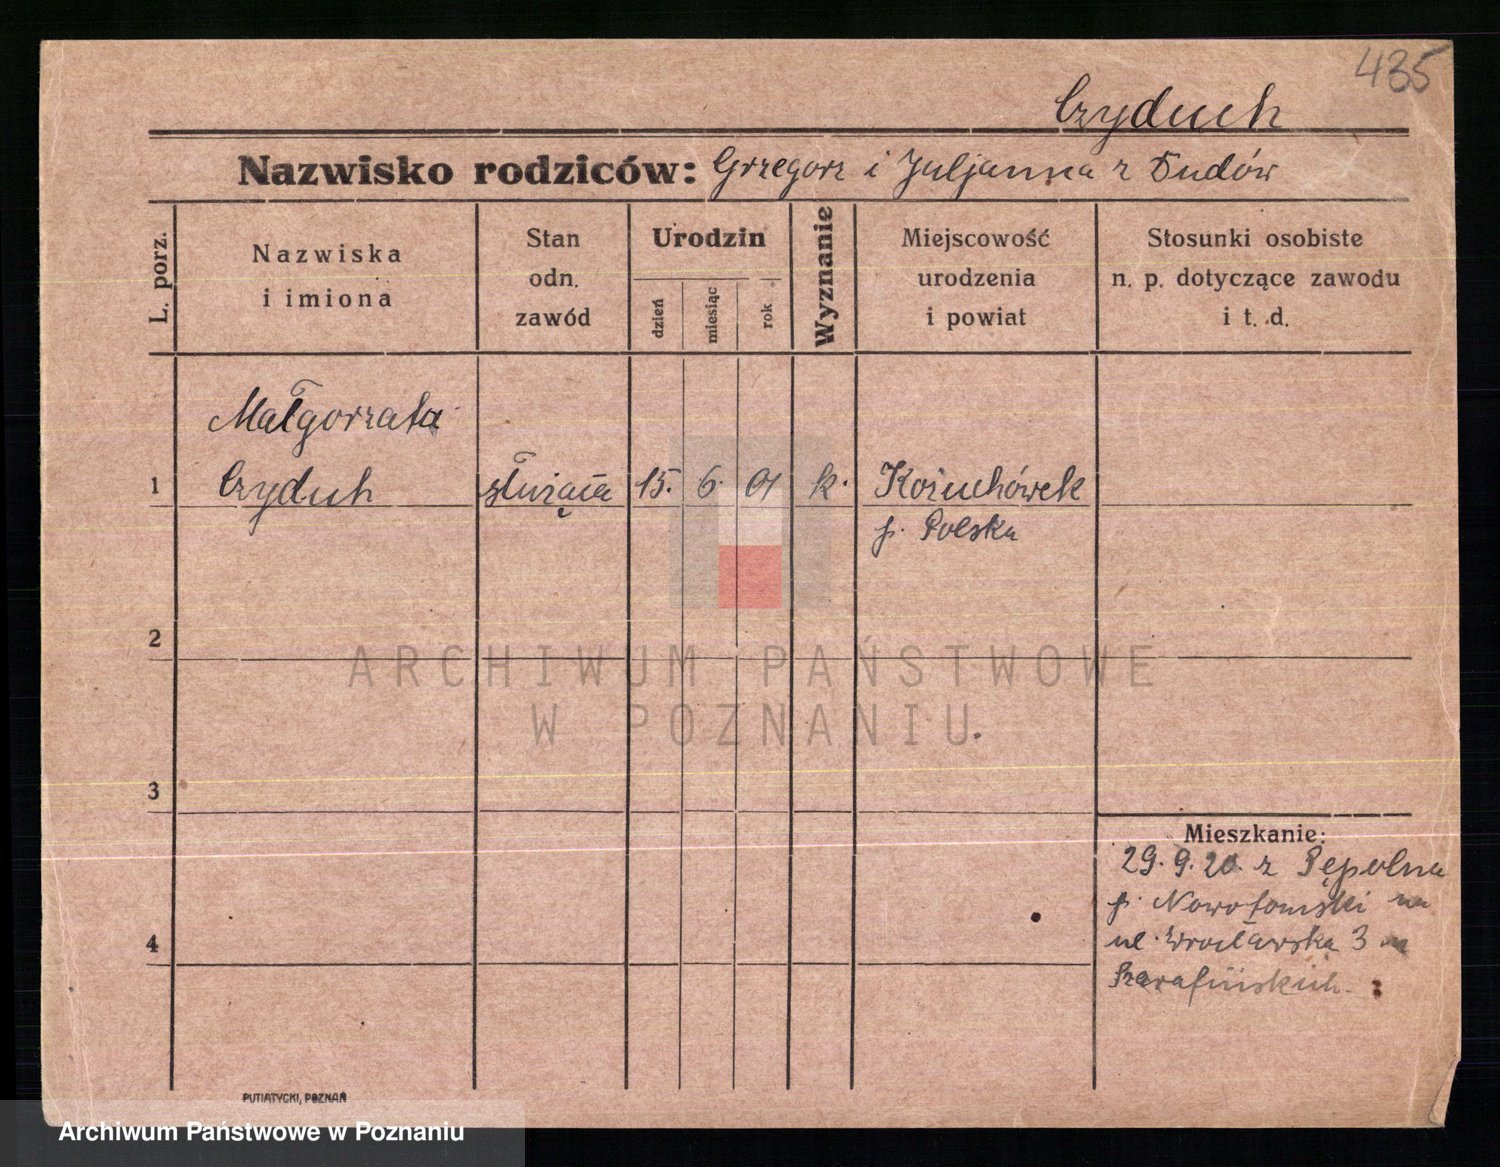 435
Czyduch
Nazwisko rodziców: Grzegorz i Juljanna z Dudów
L. porz.
Nazwiska
i imiona
Stan
odn.
zawód
Urodzin
dzień
miesiąc
rok
Wyznanie
Miejscowość
urodzenia
i powiat
Stosunki osobiste
n. p. dotyczące zawodu
i t. d.
Małgorzata
1 Czyduch służąca 15. 6. 01 k. Kożuchówek
p. Polska
2
3
4
Mieszkanie:
29. 9. 20. z Sępolna
p. Nowotomski na
ul. Wrocławska 3
ARCHIWUM PAŃSTWOWE
W POZNANIU
PUTIATYCKI, POZNAŃ
Archiwum Państwowe w Poznaniu